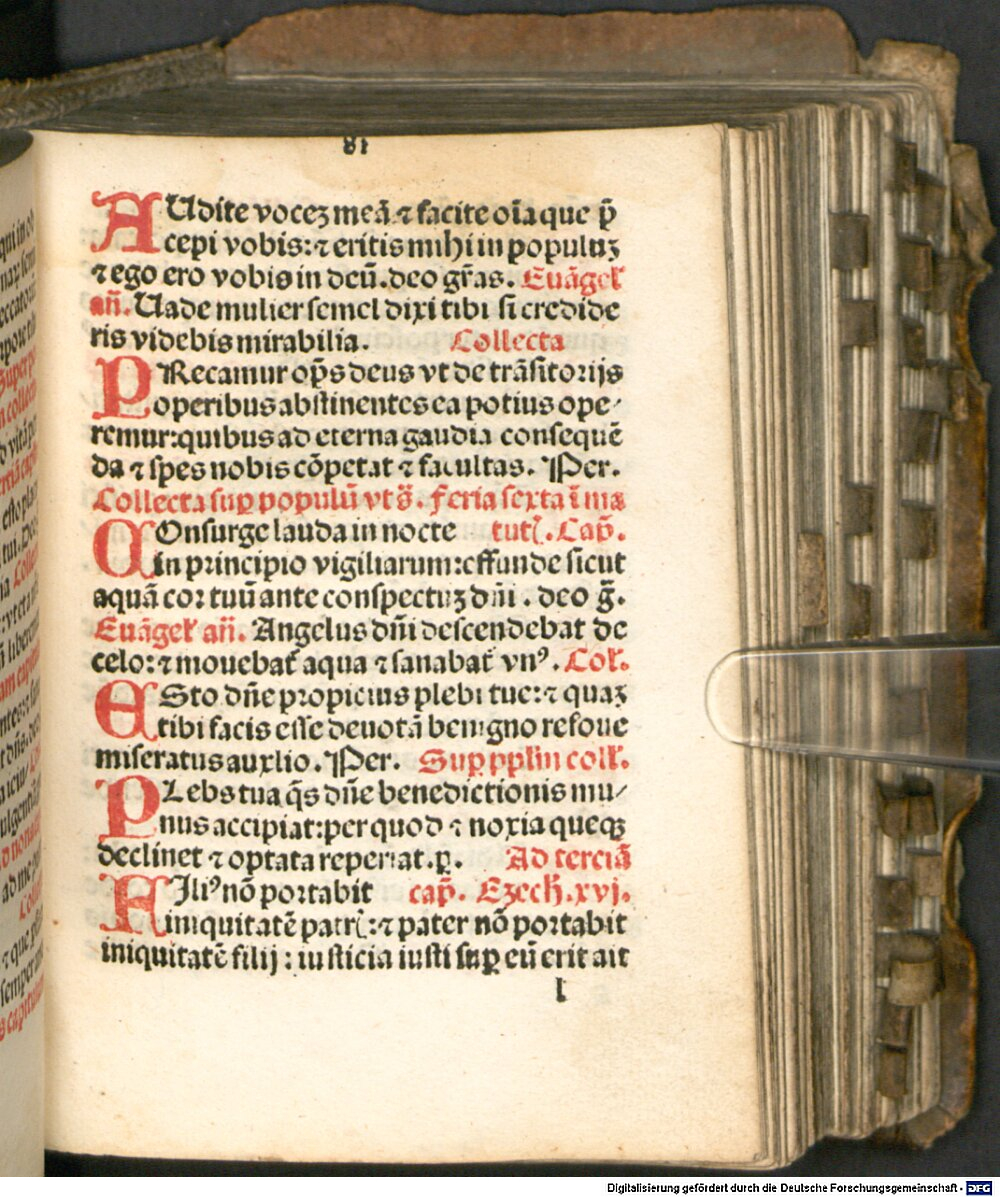 81
AUdite voceꝫ meã ⁊ facite oĩa que p̃
cepi vobis: ⁊ eritis mihi in populuꝫ
⁊ ego ero vobis in deũ. deo gr̃as. Euãgel̃
añ. Uade mulier semel dixi tibi si credide
ris videbis mirabilia. Collecta
PRecamur op̃s deus vt de trãsitorijs
operibus abstinentes ea potius ope⸗
remur: quibus ad eterna gaudia consequẽ
da ⁊ spes nobis cõpetat ⁊ facultas. Per.
Collecta suꝑ populũ vt s̃. feria sexta ĩ ma
COnsurge lauda in nocte tuti. Cap̃.
in principio vigiliarum: effunde sicut
aquã cor tuũ ante conspectuꝫ dñi. deo g̃.
Euãgel̃ añ. Angelus dñi descendebat de
celo: ⁊ mouebat̃ aqua ⁊ sanabat̃ vnꝰ. Col̃.
ESto dñe propicius plebi tue: ⁊ quaꝫ
tibi facis esse deuotã benigno refoue
miseratus auxlio. Per. Suꝑ pplm̃ coll̃.
PLebs tua q̃s dñe benedictionis mu⸗
nus accipiat: per quod ⁊ noxia queqꝫ
declinet ⁊ optata reperiat. ꝑ. Ad terciã
FIliꝰ nõ portabit cap̃. Ezech̃. xvj.
iniquitatẽ patrĩ: ⁊ pater nõ portabit
iniquitatẽ filij: iusticia iusti suꝑ eũ erit ait
l
Digitalisierung gefördert durch die Deutsche Forschungsgemeinschaft - DFG